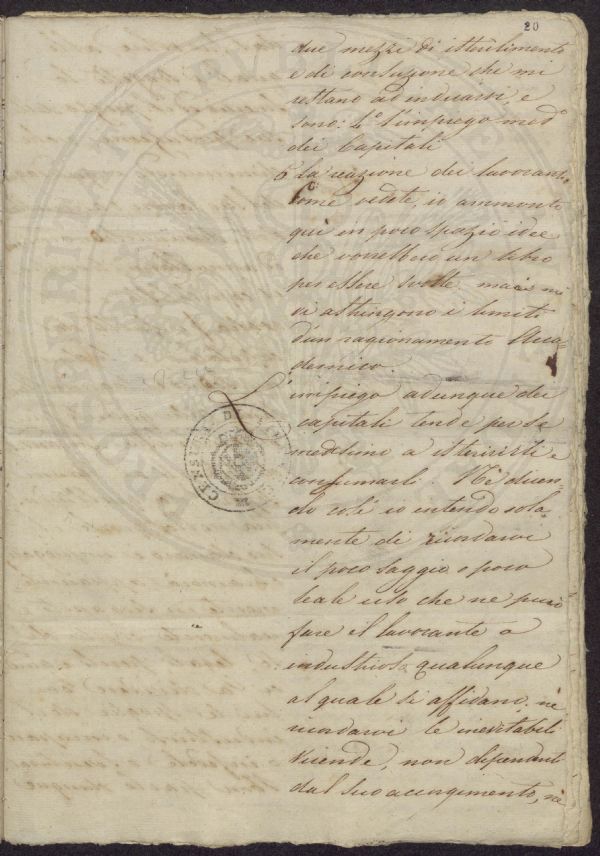 20
due mezzi di isterilimento
e di consuzione che mi
restano ad indicarvi, e
sono: 1º l'impiego med.º
dei Capitali
la reazione dei lavoranti.
Come vedete, io ammonto
qui in poco spazio idee
che vorrebbero un libro
per essere svolte, ma
astringono i limiti
d'un ragionamento Acca=
demico.
L'impiego adunque dei
capitali tende per se
medesimo a isterirli e
consumarli. Nè dicen=
do così io intendo sola
mente di ricordarvi
il poco saggio o poco
leale uso che ne può
fare il lavorante o
industriale qualunque
al quale si affidano, nè
ricordarvi le inevitabili
vicende, non dipendenti
dal suo accorgimento, nè
CENSURA DI